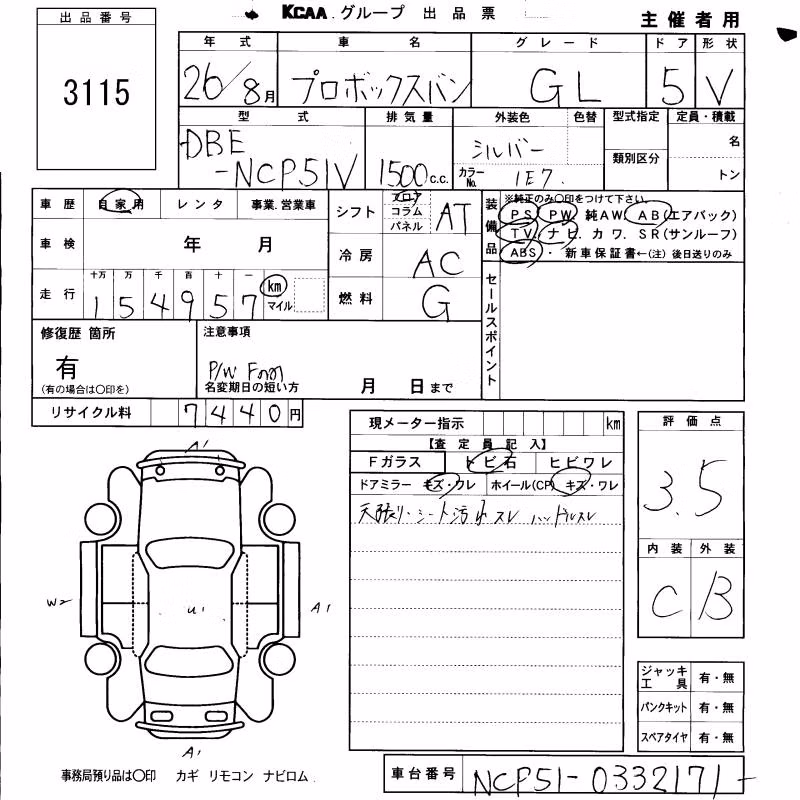 KCAA グループ 出品票
主催者用
出品番号
3115
年式 車名 グレード ドア 形状
26/8月 プロボックスバン GL 5 V
型式 排気量 外装色 色替 型式指定 定員・積載
DBE-NCP51V 1500 c.c. シルバー カラーNo. 1E7. 類別区分 名 トン
車歴 自家用 レンタ 事業.営業車
車検 年 月
走行 十万 万 千 百 十 一
154957 km マイル
シフト フロア コラム パネル AT
冷房 AC
燃料 G
装備品 ※純正のみ〇印をつけて下さい
PS PW 純AW. AB(エアバック)
TV. ナビ. カワ. SR(サンルーフ)
ABS・ 新車保証書←(注)後日送りのみ
セールスポイント
修復歴 箇所
有
(有の場合は〇印を)
注意事項
P/W
名変期日の短い方 月 日まで
リサイクル料 7440円
現メーター指示 km
【査定員記入】
Fガラス トビ石 ヒビワレ
ドアミラー キズ・ワレ ホイール(CP) キズ・ワレ
天張り・シート汚 スレ ハンドルスレ
評価点
3.5
内装 外装
C B
A1
W2 U1 A1
A1
ジャッキ工具 有・無
パンクキット 有・無
スペアタイヤ 有・無
事務局預り品は〇印 カギ リモコン ナビロム.
車台番号 NCP51-0332171-